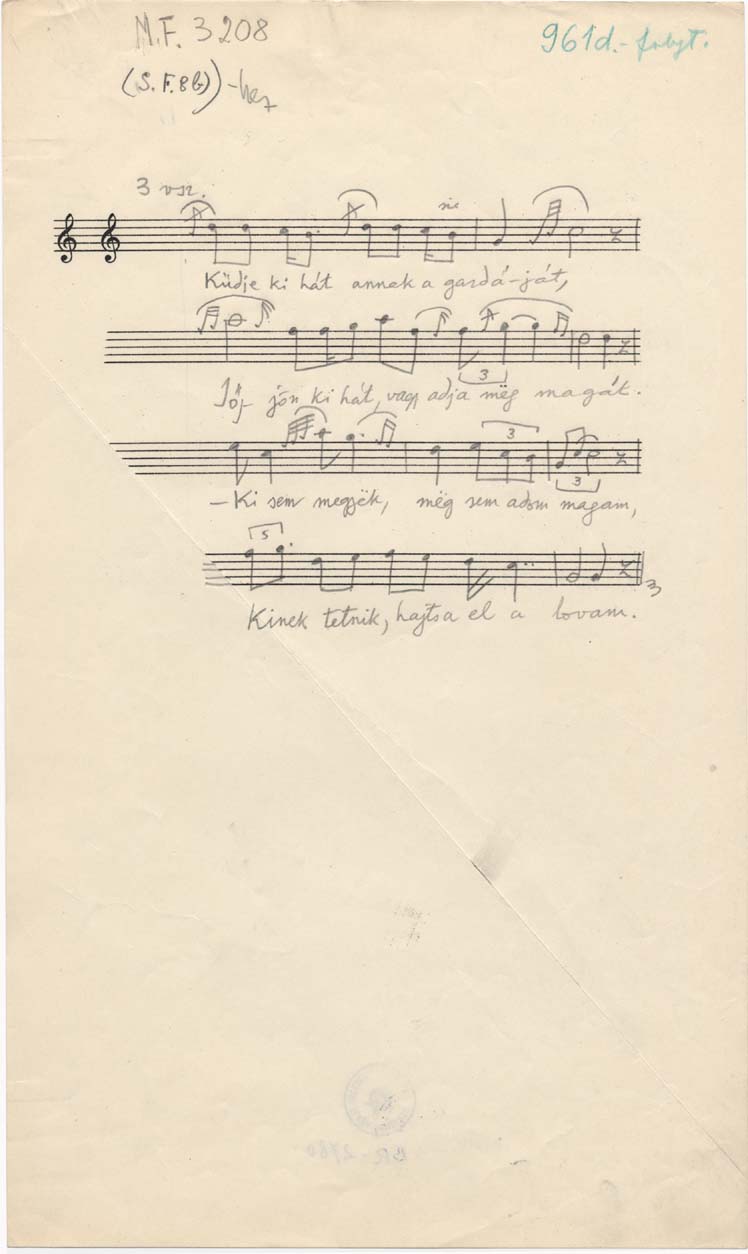 M.F. 3208
961d.- folyt.
(S.F.8b)-hez
3 vsz.
sic
Küdje ki hát annak a gardá-ját,
Jőj jön ki hát, vagy adja még magát.
3
3
- Ki sem megyëk, mëg sem adom magam,
3
5
Kinek tetnik, hajtsa el a lovam.
3